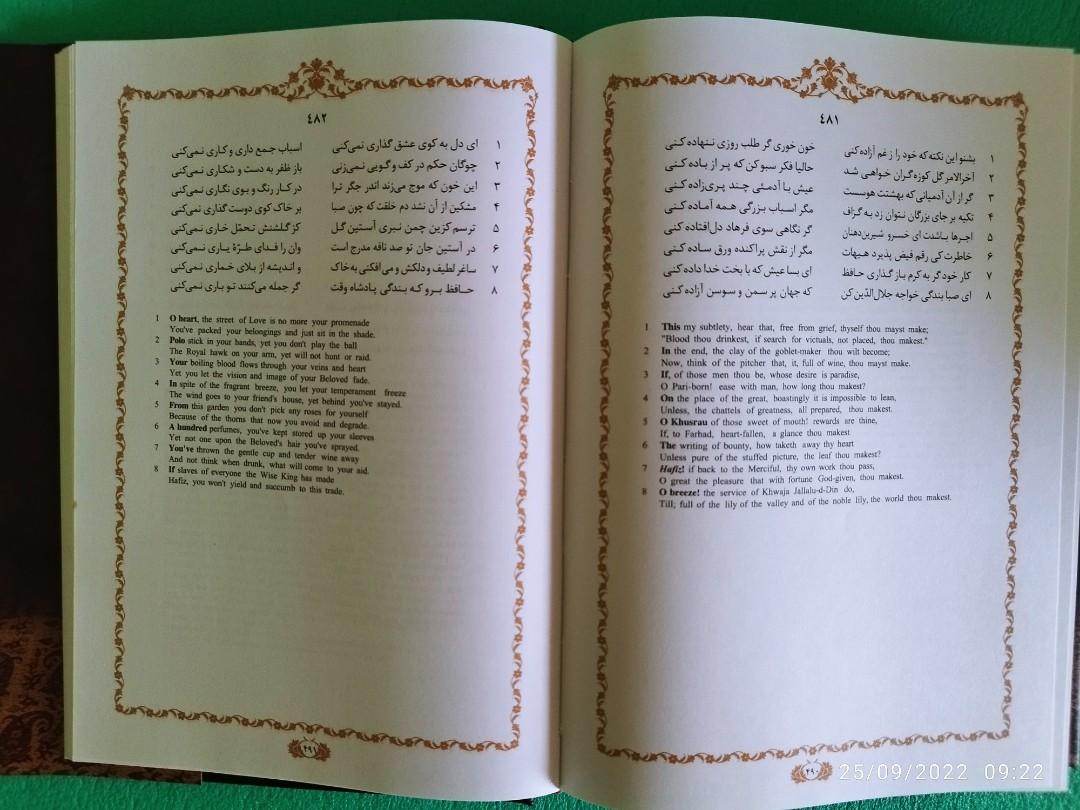 ٤٨١
۱ بشنو این نکته که خود را ز غم آزاده کنی خون خوری گر طلب روزی ننهاده کنی
۲ آخرالامر گل کوزه‌گران خواهی شد حالیا فکر سبو کن که پر از باده کنی
۳ گر از آن آدمیانی که بهشتت هوسست عیش با آدمئی چند پری‌زاده کنی
۴ تکیه بر جای بزرگان نتوان زد به گزاف مگر اسباب بزرگی همه آماده کنی
۵ اجرها باشدت ای خسرو شیرین‌دهنان گر نگاهی سوی فرهاد دل‌افتاده کنی
۶ خاطرت کی رقم فیض پذیرد هیهات مگر از نقش پراکنده ورق ساده کنی
۷ کار خود گر به کرم باز گذاری حافظ ای بسا عیش که با بخت خدا داده کنی
۸ ای صبا بندگی خواجه جلال‌الدّین کن که جهان پر سمن و سوسن آزاده کنی
1 This my subtlety, hear that, free from grief, thyself thou mayst make;
"Blood thou drinkest, if search for victuals, not placed, thou makest."
2 In the end, the clay of the goblet-maker thou wilt become;
Now, think of the pitcher that, it, full of wine, thou mayst make.
3 If, of those men thou be, whose desire is paradise,
O Pari-born! ease with man, how long thou makest?
4 On the place of the great, boastingly it is impossible to lean,
Unless, the chattels of greatness, all prepared, thou makest.
5 O Khusrau of those sweet of mouth! rewards are thine,
If, to Farhad, heart-fallen, a glance thou makest
6 The writing of bounty, how taketh away thy heart
Unless pure of the stuffed picture, the leaf thou makest?
7 Hafiz! if back to the Merciful, thy own work thou pass,
O great the pleasure that with fortune God-given, thou makest.
8 O breeze! the service of Khwaja Jallalu-d-Din do,
Till; full of the lily of the valley and of the noble lily, the world thou makest.
۴۹۰
٤٨٢
۱ ای دل به کوی عشق گذاری نمی‌کنی اسباب جمع داری و کاری نمی‌کنی
۲ چوگان حکم در کف و گویی نمی‌زنی باز ظفر به دست و شکاری نمی‌کنی
۳ این خون که موج می‌زند اندر جگر ترا در کار رنگ و بوی نگاری نمی‌کنی
۴ مشکین از آن نشد دم خلقت که چون صبا بر خاک کوی دوست گذاری نمی‌کنی
۵ ترسم کزین چمن نبری آستین گل کز گلشنش تحمّل خاری نمی‌کنی
۶ در آستین جان تو صد نافه مدرج است وان را فدای طرّهٔ یاری نمی‌کنی
۷ ساغر لطیف و دلکش و می افکنی به خاک و اندیشه از بلای خماری نمی‌کنی
۸ حافظ برو که بندگی پادشاه وقت گر جمله می‌کنند تو باری نمی‌کنی
1 O heart, the street of Love is no more your promenade
You've packed your belongings and just sit in the shade.
2 Polo stick in your hands, yet you don't play the ball
The Royal hawk on your arm, yet will not hunt or raid.
3 Your boiling blood flows through your veins and heart
Yet you let the vision and image of your Beloved fade.
4 In spite of the fragrant breeze, you let your temperament freeze
The wind goes to your friend's house, yet behind you've stayed.
5 From this garden you don't pick any roses for yourself
Because of the thorns that now you avoid and degrade.
6 A hundred perfumes, you've kept stored up your sleeves
Yet not one upon the Beloved's hair you've sprayed.
7 You've thrown the gentle cup and tender wine away
And not think when drunk, what will come to your aid.
8 If slaves of everyone the Wise King has made
Hafiz, you won't yield and succumb to this trade.
۴۹۱
25/09/2022 09:22